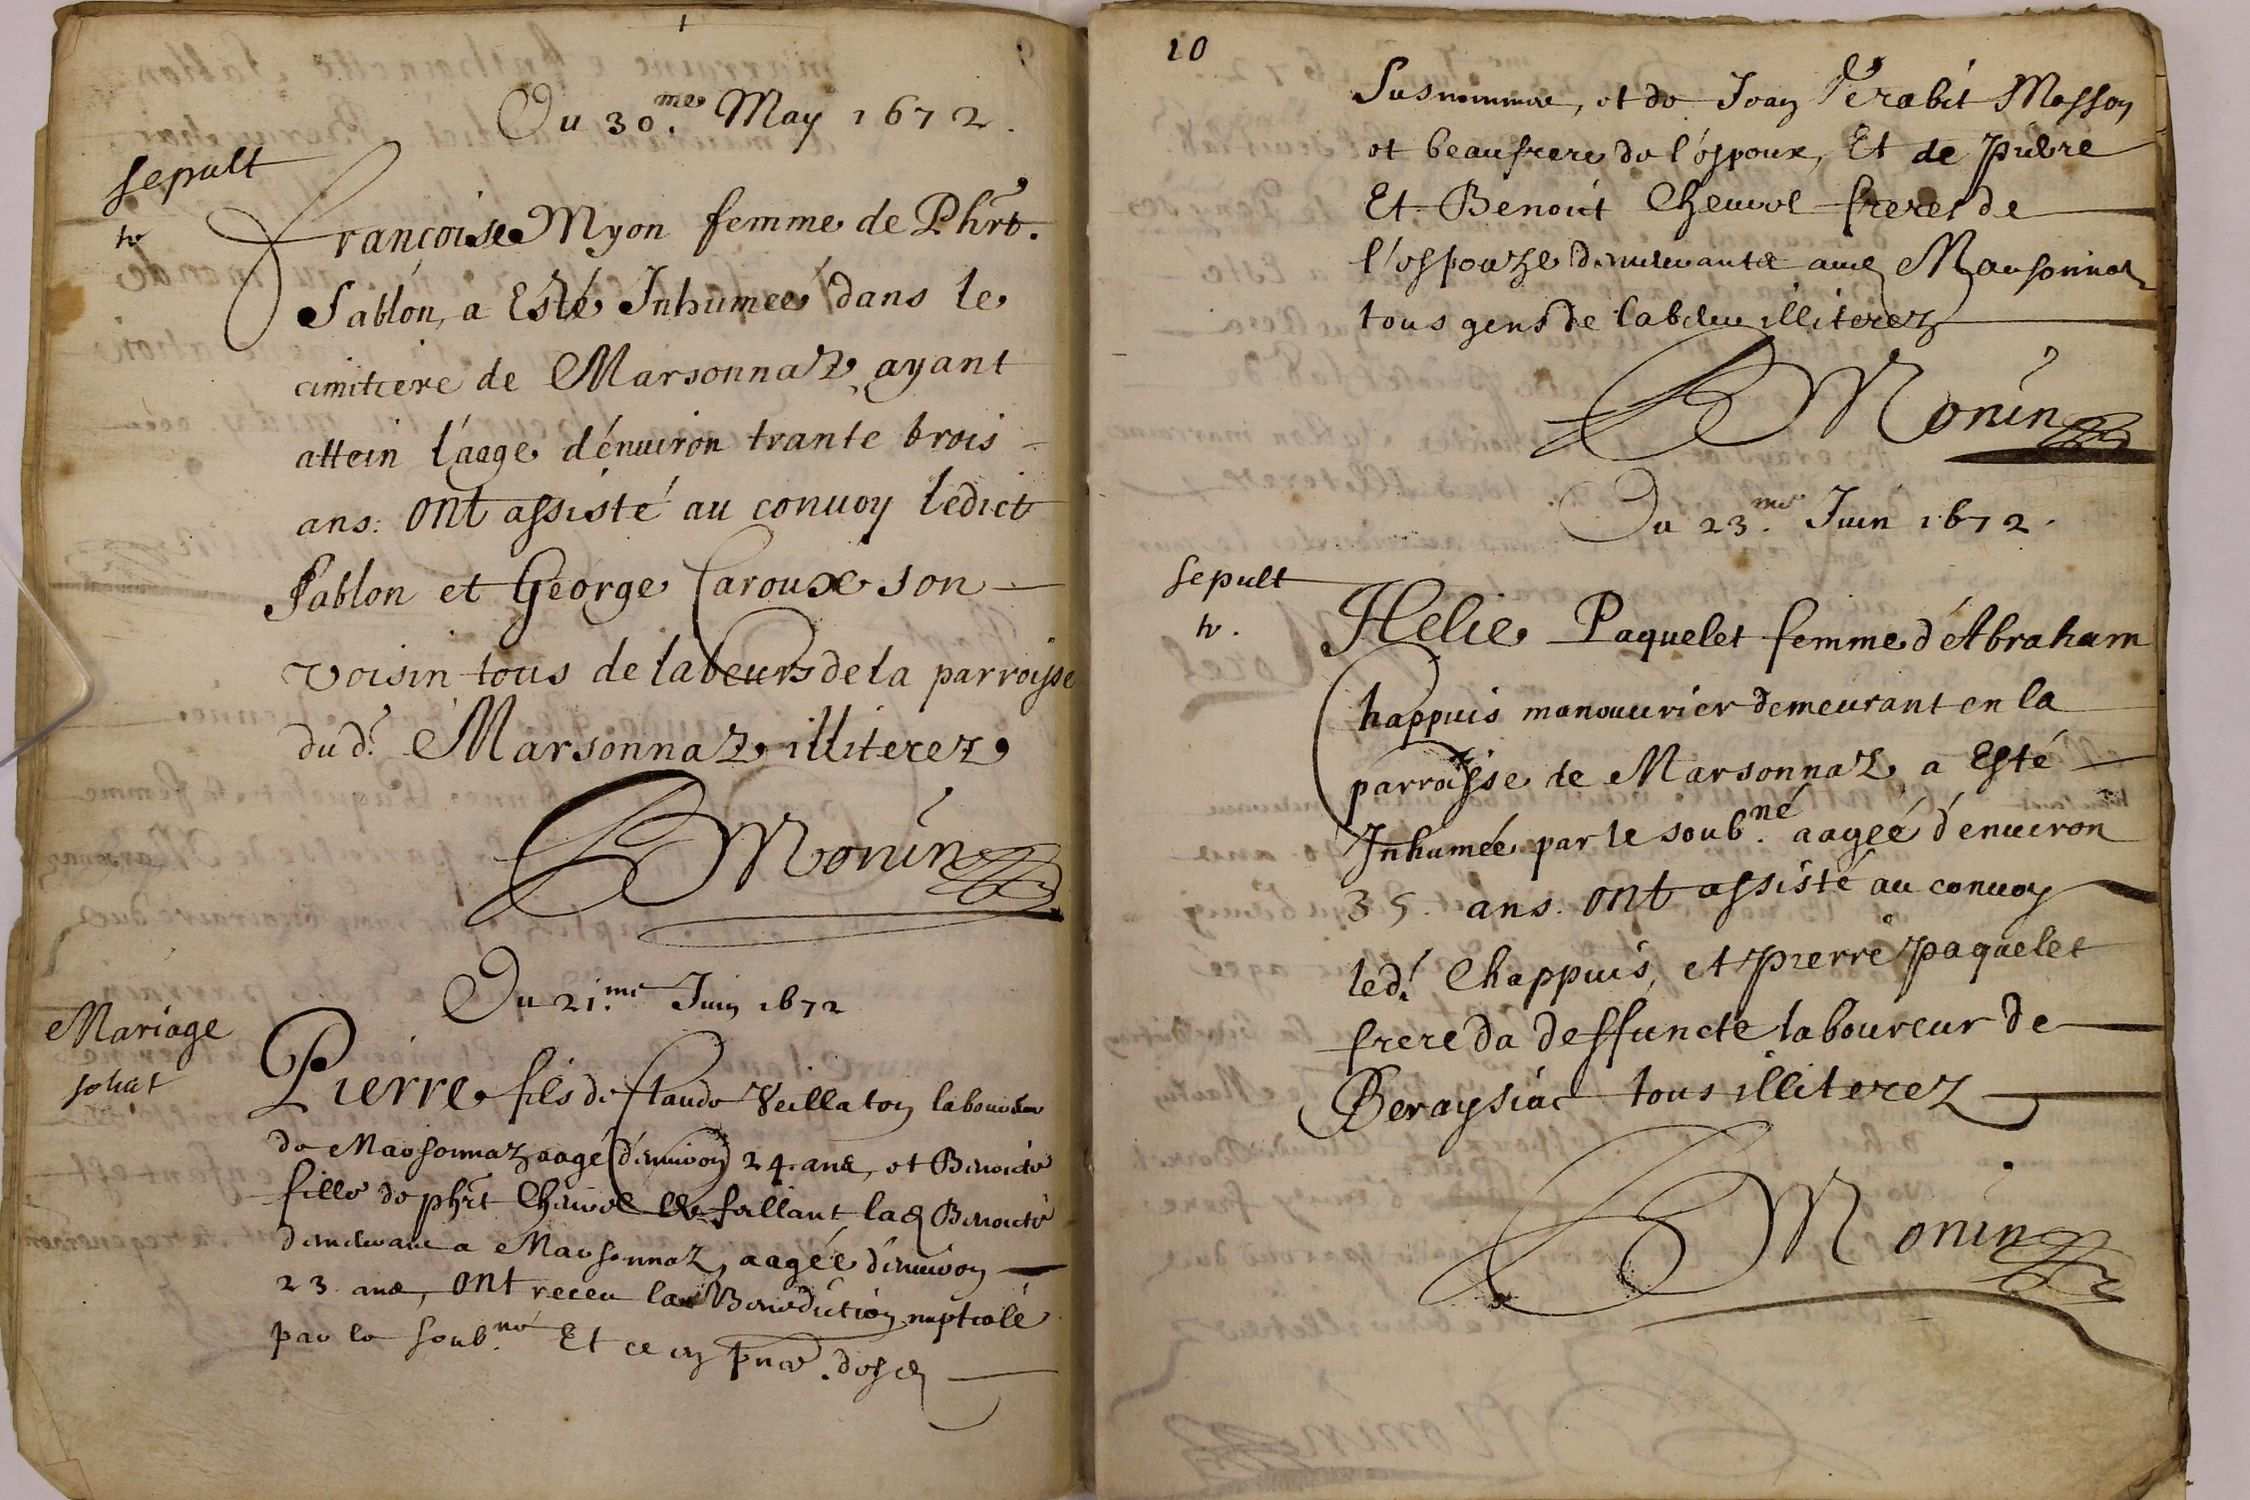 Du 30.me May 1672.
sepult
tr
Françoise Myon femme de Phrt.
Sablon, a Esté Inhumeé dans le
cimitiere de Marsonnaz, ayant
attein l'aage d'énuiron trante trois
ans: ont assisté au conuoy ledict
Sablon et George Caroux son
voisin tous de labeurs de la parroisse
dud.t Marsonnaz illiterez
BMonin
Du 21.me Juin 1672
Mariage
Pierre fils de Claude Veillaton laboureur
de Marsonnaz aagé d'enuiron 24. ans, et Benoicte
fille de phrt Cheurel lad Benoicte
demeurant a Marsonnaz, aagée d'enuiron
23. ans, ont receu la Benediction nuptialé
par le soub.né Et ce en pnce.
10
Susnommé, et de Jean Perabit Masson
et beaufrere de l'espoux, Et de pierre
Et Benoict Cheurel freres de
l'espouze demeurants aud Marsonnaz
tous gens de labeur illiterez
BMonin
Du 23.me Juin 1672.
sepult
tr.
Helie Paquelet femme d'Abraham
Chappuis manouurier demeurant en la
parroisse de Marsonnaz, a Esté
Inhumée par le soub.né aageé d'enuiron
35. ans. ont assisté au conuoy
led.t Chappuis, et pierre paquelet
frere da deffuncte laboureur de
Beraysiac tous illiterez
BMonin